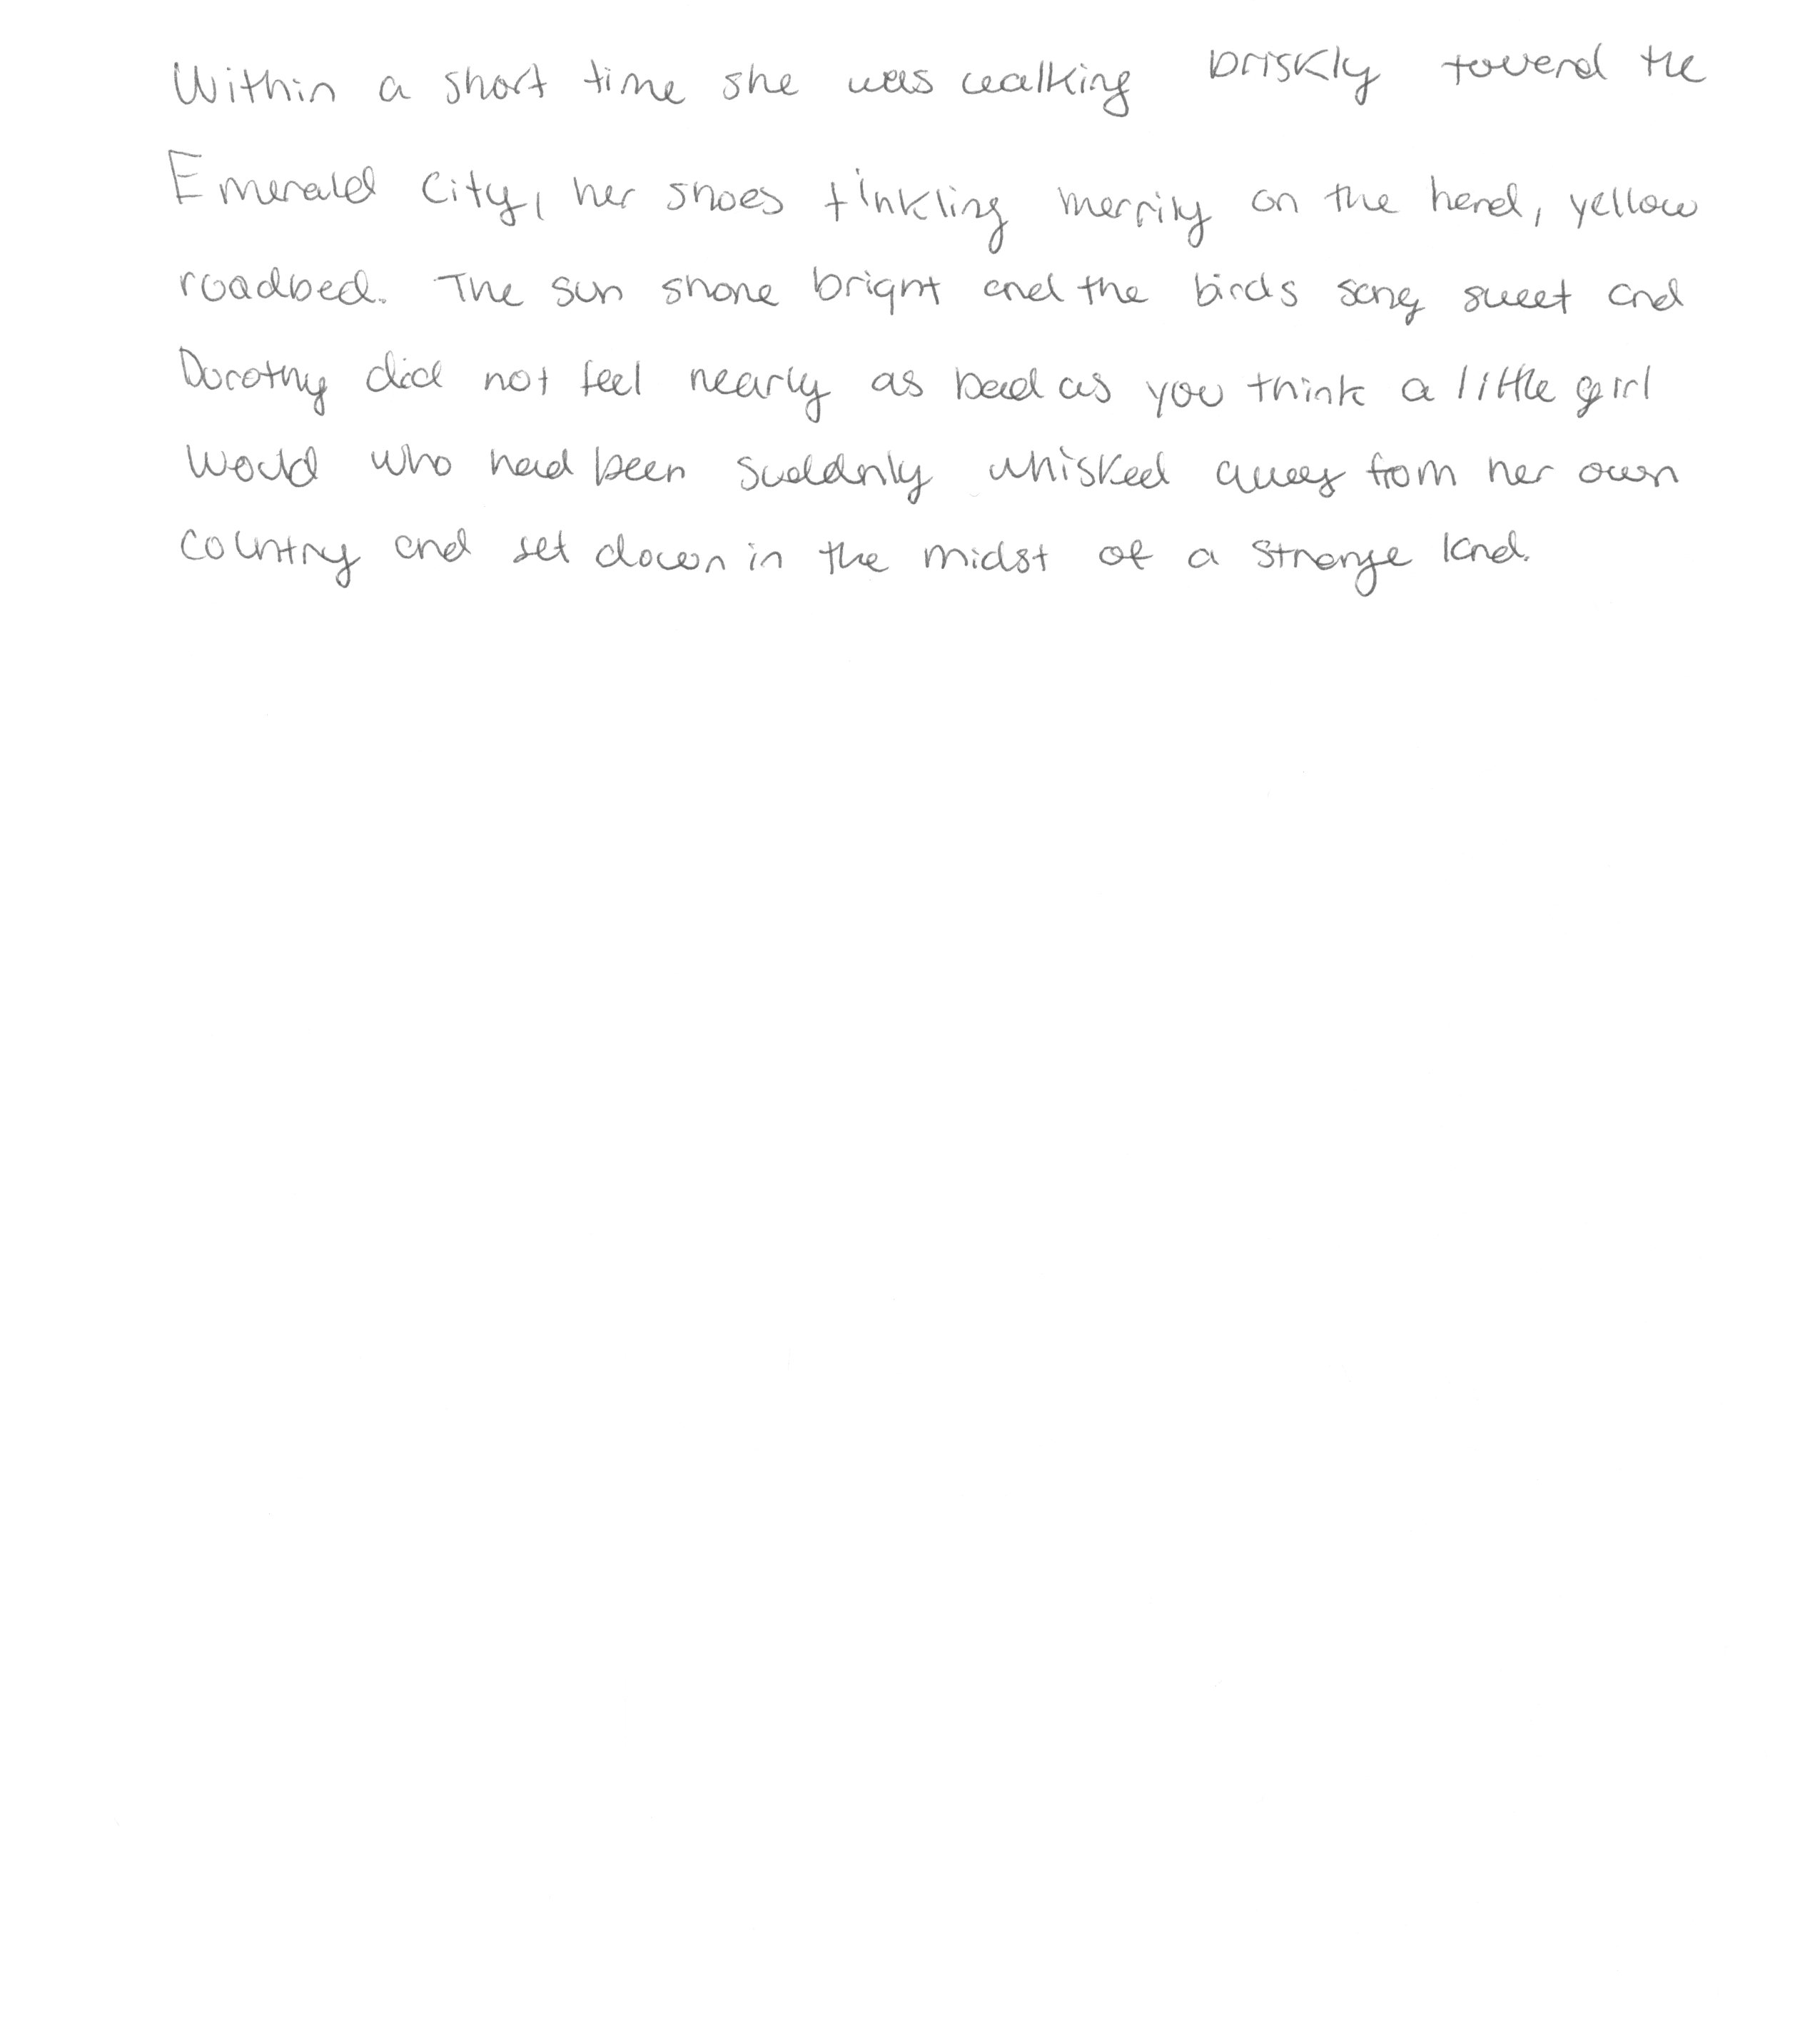 Within a short time she was walking briskly toward the
Emerald City, her shoes tinkling merrily on the hard, yellow
roadbed. The sun shone bright and the birds sang sweet and
Dorothy did not feel nearly as bad as you think a little girl
would who had been suddnly whisked away from her own
country and set down in the midst of a strange land.